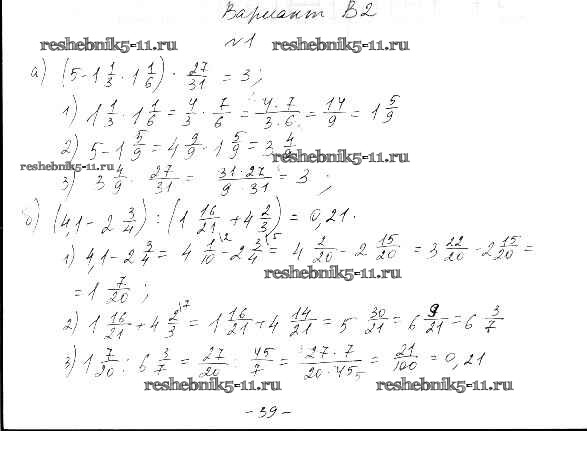 Вариант В2
reshebnik5-11.ru №1 reshebnik5-11.ru
а) (5 - 1 1/3 · 1 1/6) · 27/31 = 3;
1) 1 1/3 · 1 1/6 = 4/3 · 7/6 = 4·7/3·6 = 14/9 = 1 5/9
2) 5 - 1 5/9 = 4 9/9 - 1 5/9 = 3 4/9
reshebnik5-11.ru reshebnik5-11.ru
3) 3 4/9 · 27/31 = 31·27/9·31 = 3;
б) (4,1 - 2 3/4) : (1 16/21 + 4 2/3) = 0,21.
1) 4,1 - 2 3/4 = 4 1/10 \2 - 2 3/4 \5 = 4 2/20 - 2 15/20 = 3 22/20 - 2 15/20 =
reshebnik5-11.ru
= 1 7/20;
2) 1 16/21 + 4 2/3 \7 = 1 16/21 + 4 14/21 = 5 30/21 = 6 9/21 = 6 3/7
3) 1 7/20 : 6 3/7 = 27/20 : 45/7 = 27·7/20·45 5 = 21/100 = 0,21
reshebnik5-11.ru reshebnik5-11.ru
- 39 -